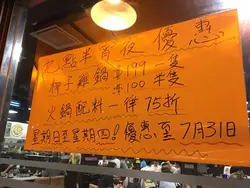 九點半宵夜優惠
椰子雞鍋 $199 一隻
$100 半隻
火鍋配料一律75折
星期日至星期四! 優惠至7月31日